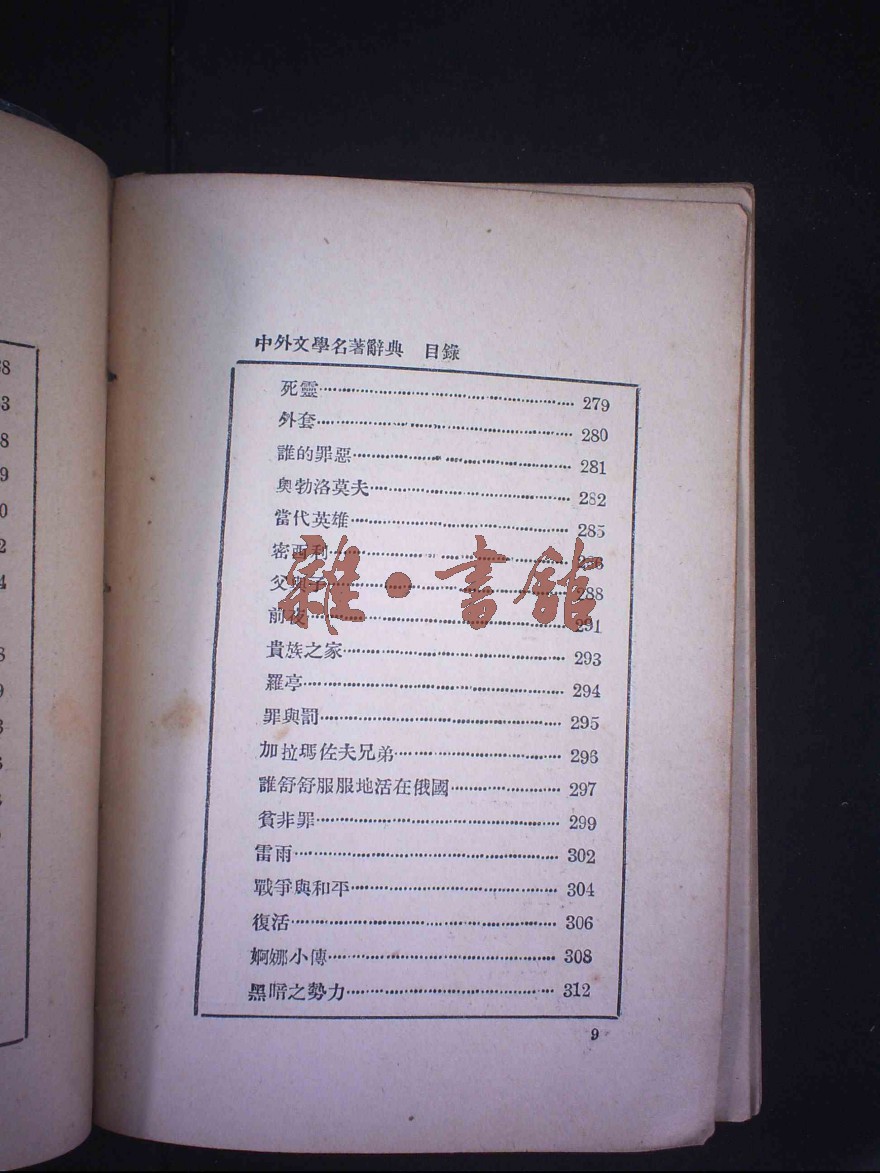 中外文學名著辭典 目錄
死靈 279
外套 280
誰的罪惡 281
奧勃洛莫夫 282
當代英雄 285
密西利 286
父與子 288
前夜 291
貴族之家 293
羅亭 294
罪與罰 295
加拉瑪佐夫兄弟 296
誰舒舒服服地活在俄國 297
貧非罪 299
雷雨 302
戰爭與和平 304
復活 306
婀娜小傳 308
黑暗之勢力 312
9
雜·書館